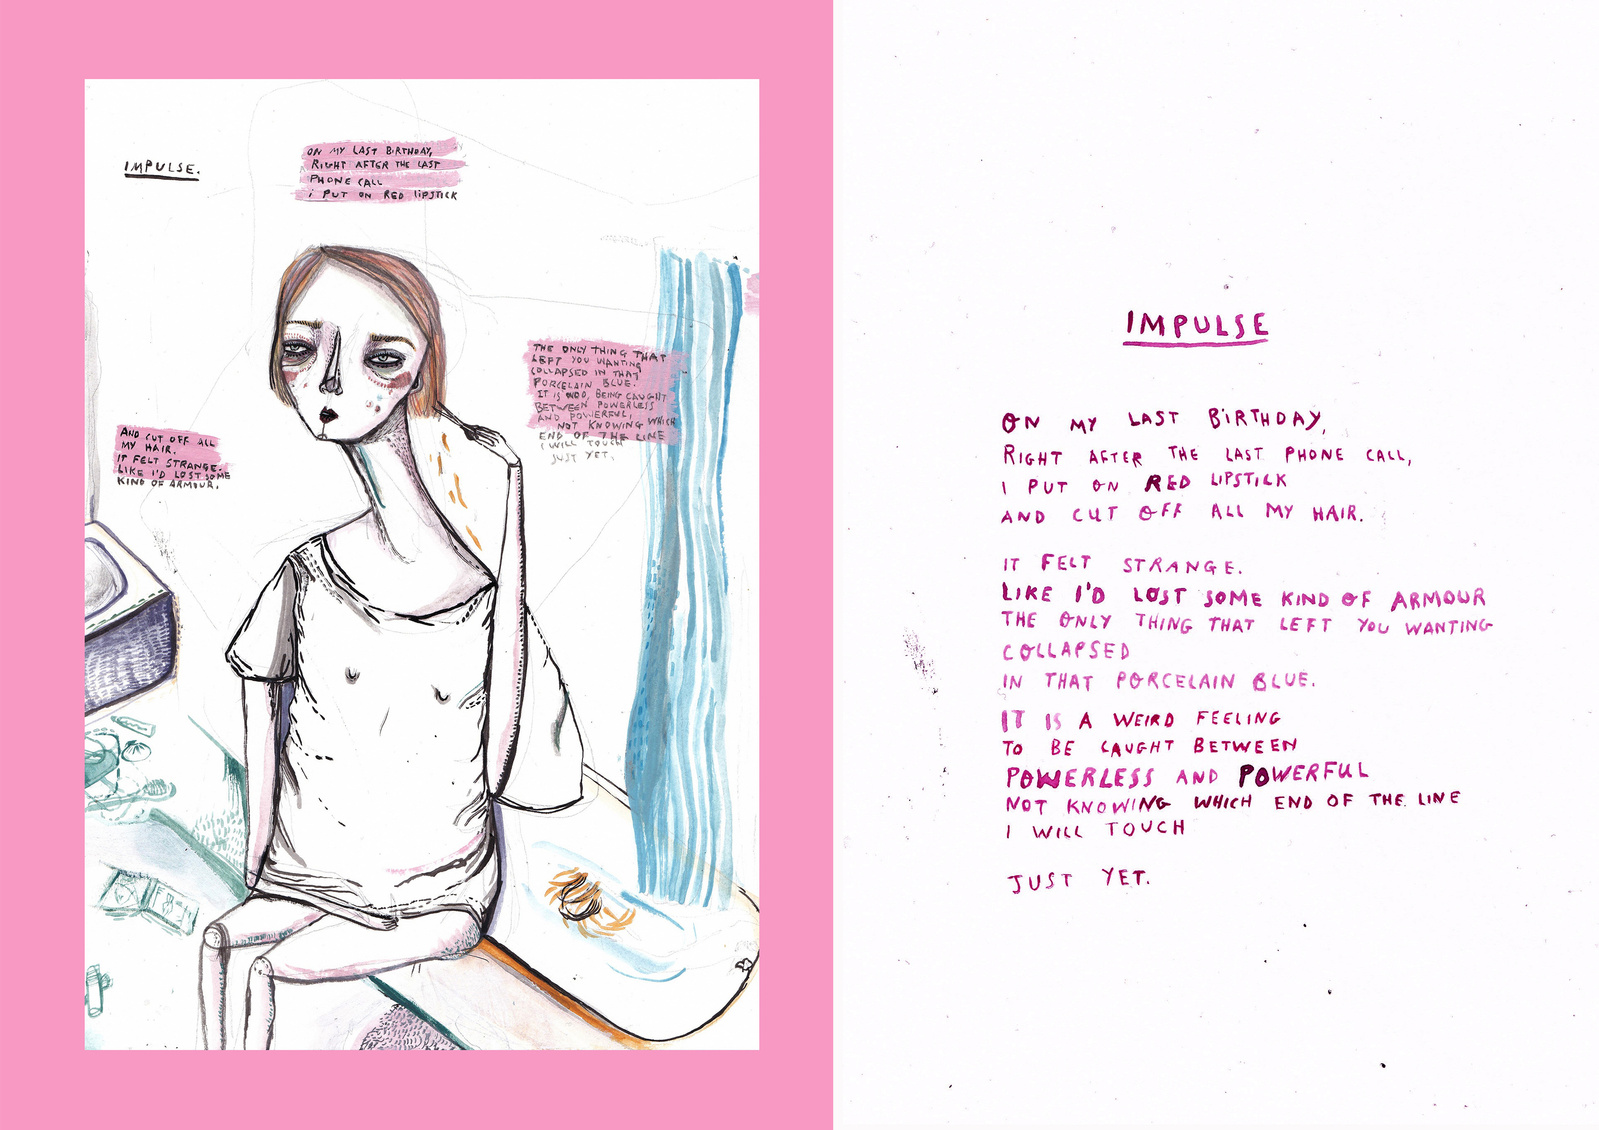 IMPULSE.
ON MY LAST BIRTHDAY,
RIGHT AFTER THE LAST
PHONE CALL
i PUT ON RED LIPSTICK
AND CUT OFF ALL
MY HAIR.
IT FELT STRANGE.
LIKE I'D LOST SOME
KIND OF ARMOUR.
THE ONLY THING THAT
LEFT YOU WANTING
COLLAPSED IN THAT
PORCELAIN BLUE.
IT IS BEING CAUGHT
BETWEEN POWERLESS
AND POWERFUL,
NOT KNOWING WHICH
END OF THE LINE
I WILL TOUCH
JUST YET.
IMPULSE
ON MY LAST BIRTHDAY,
RIGHT AFTER THE LAST PHONE CALL,
I PUT ON RED LIPSTICK
AND CUT OFF ALL MY HAIR.
IT FELT STRANGE.
LIKE I'D LOST SOME KIND OF ARMOUR
THE ONLY THING THAT LEFT YOU WANTING
COLLAPSED
IN THAT PORCELAIN BLUE.
IT IS A WEIRD FEELING
TO BE CAUGHT BETWEEN
POWERLESS AND POWERFUL
NOT KNOWING WHICH END OF THE LINE
I WILL TOUCH
JUST YET.